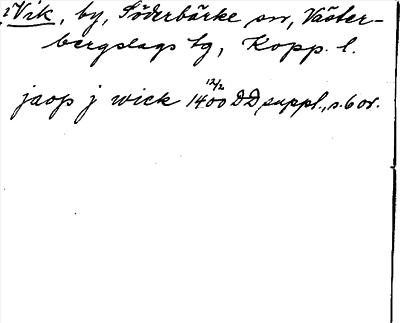 Vik, by, Söderbärke sn, Väster-
bergslags tg, Kopp. l.
jaop j wick 1400 12/2 DD suppl., s. 6 or.